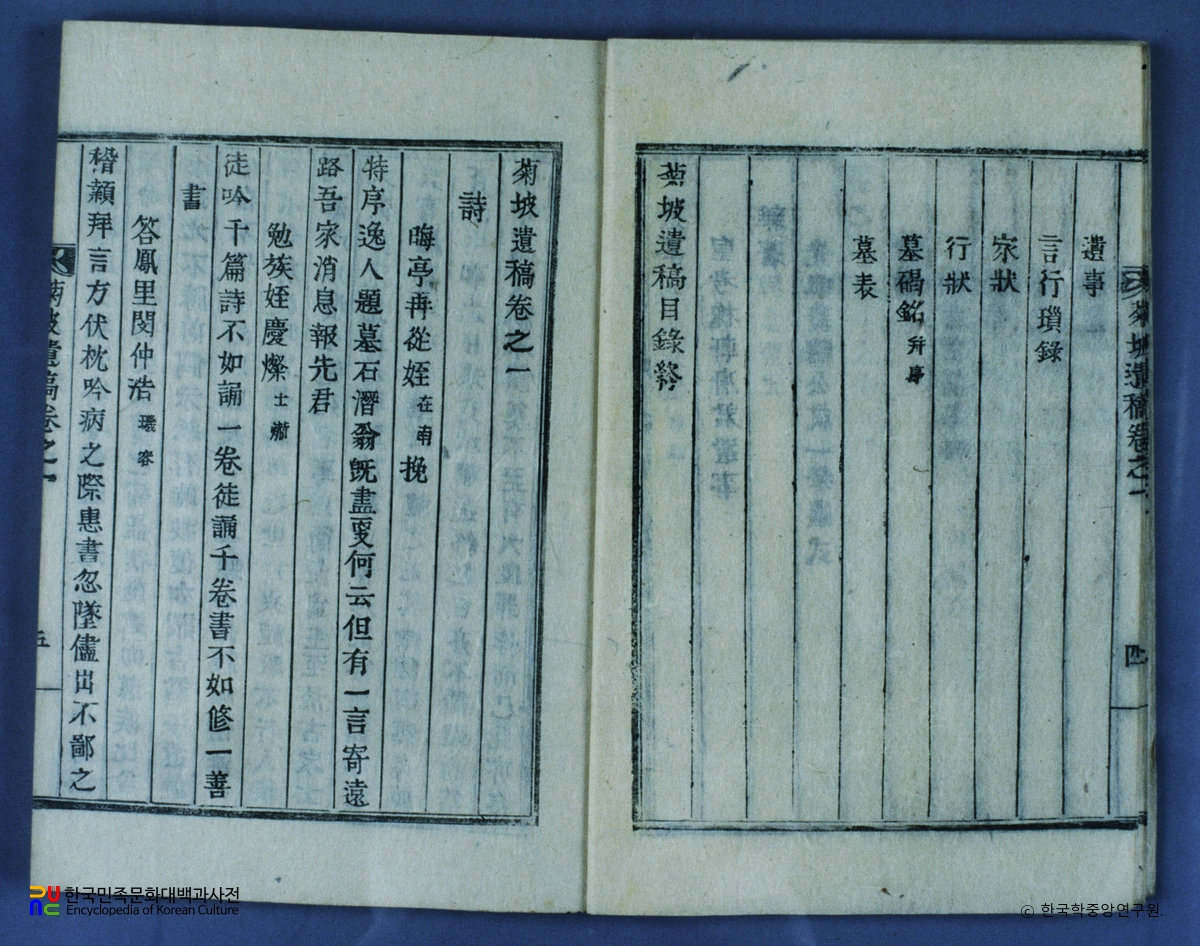 遺事
言行瑣錄
家狀
行狀
墓碣銘 幷序
墓表
菊坡遺稿目錄終
菊坡遺稿卷之一
四
菊坡遺稿卷之一
詩
晦亭再從姪 在南 挽
特序逸人題墓石潛翁旣盡更何云但有一言寄遠
路吾家消息報先君
勉族姪慶燦 士
徒吟千篇詩不如誦一卷徒誦千卷書不如修一善
書
答鳳里閔仲浩 璣容
稽顙拜言方伏枕吟病之際惠書忽墜儘出不鄙之
菊坡遺稿卷之一
五
한국민족문화대백과사전
Encyclopedia of Korean Culture
© 한국학중앙연구원.